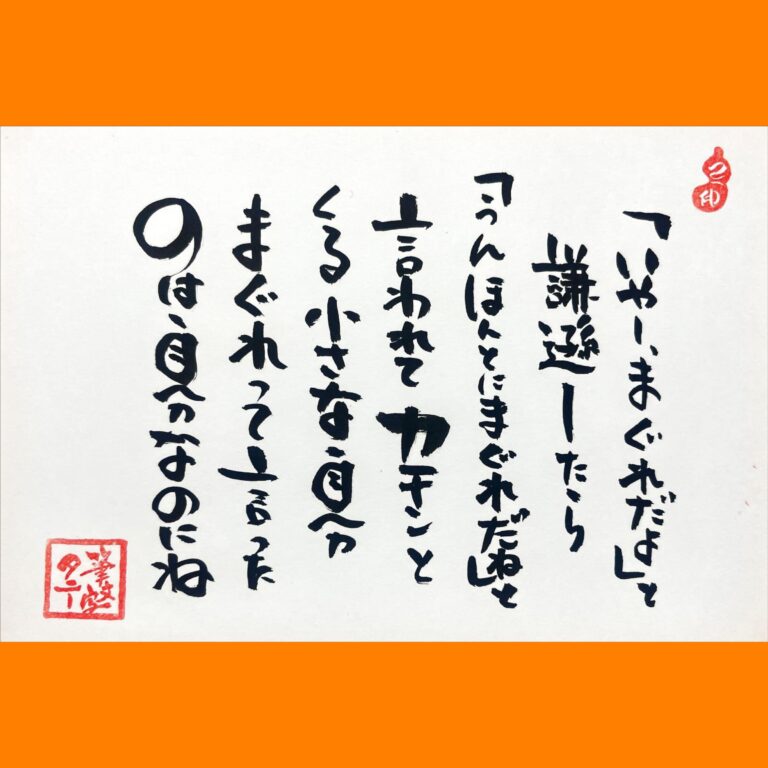 「いやー、まぐれだよ」と
謙遜したら
「うんほんとにまぐれだねと」
言われてカチンと
くる小さな自分
まぐれって言った
のは、自分なのにね
筆文字
タニー